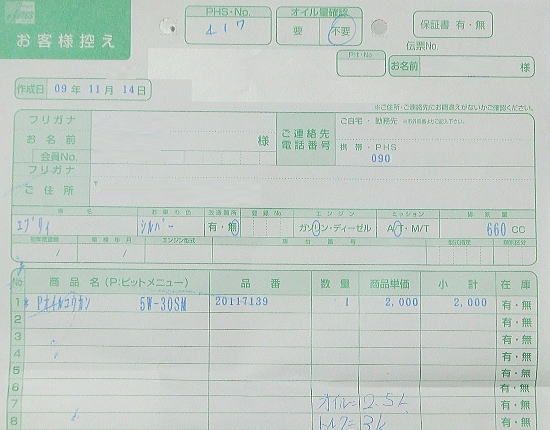 お客様控え
PHS・No.
417
オイル量確認
要 不要
保証書 有・無
伝票No.
Pit・No
お名前 様
作成日 09年 11月 14日
※ご住所・ご連絡先にお間違えがないかご確認ください。
フリガナ
お名前 様
会員No.
フリガナ
ご住所
ご連絡先
電話番号
ご自宅・勤務先
携帯・PHS
090
車名 お車の色 改造箇所 登録No. エンジン ミッション 排気量
エブリィ シルバー 有・無 ガソリン・ディーゼル A/T・M/T 660 CC
初年度登録 車検年月 エンジン型式 車台番号 型式指定 類別区分
No. 商品名(P:ピットメニュー) 品番 数量 商品単価 小計 在庫
1 * Pオイルコウカン 5W-30SM 20117139 1 2,000 2,000 有・無
2 有・無
3 有・無
4 有・無
5 有・無
6 有・無
7 オイル=2.5L 有・無
8 トルク=3k 有・無